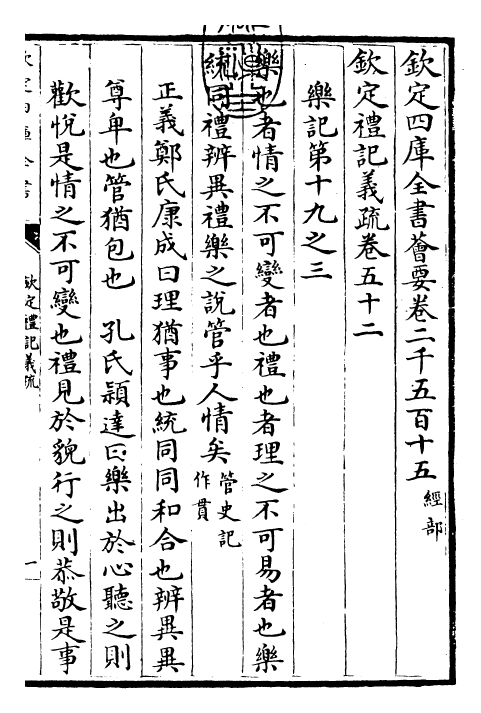 欽定四庫全書薈要卷二千五百十五 經部
欽定禮記義疏卷五十二
樂記第十九之三
樂也者情之不可變者也禮也者理之不可易者也樂
統同禮辨異禮樂之說管乎人情矣 管史記作貫
正義鄭氏康成曰理猶事也統同同和合也辨異異
尊卑也管猶包也 孔氏穎達曰樂出於心聽之則
歡悅是情之不可變也禮見於貌行之則恭敬是事
欽定禮記義疏
一